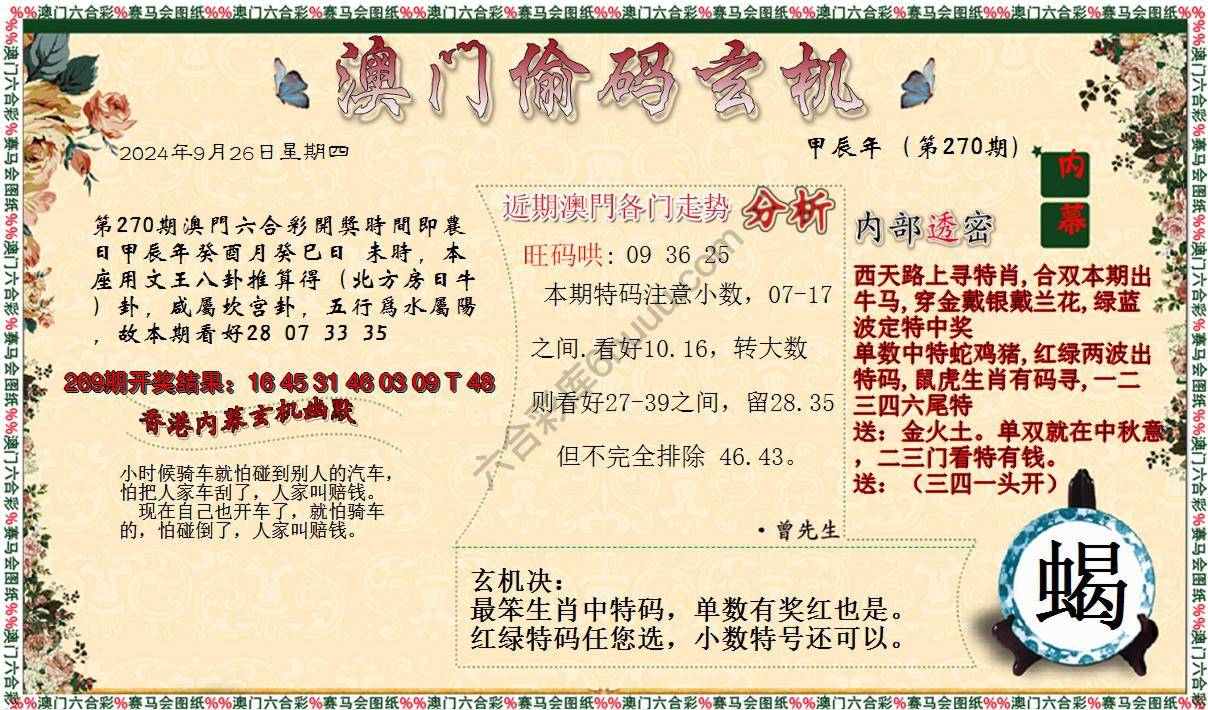 %%澳门六合彩%赛马会图纸%%澳门六合彩%赛马会图纸%%澳门六合彩%赛马会图纸%%澳门六合彩%赛马会图纸%%澳门六合彩%赛马会图纸%%澳门六合彩%赛马会图纸%%
澳门偷码玄机
2024年9月26日星期四
甲辰年（第270期）
内幕
第270期澳門六合彩開獎時間即農
日甲辰年癸酉月癸巳日 未時，本
座用文王八卦推算得（北方房日牛
）卦，咸屬坎宫卦，五行爲水屬陽
，故本期看好28 07 33 35
269期开奖结果：16 45 31 46 03 09 T 48
香港内幕玄机幽默
小时候骑车就怕碰到别人的汽车，
怕把人家车刮了，人家叫赔钱。
现在自己也开车了，就怕骑车
的，怕碰倒了，人家叫赔钱。
近期澳門各门走势 分析
旺码哄: 09 36 25
本期特码注意小数，07-17
之间.看好10.16，转大数
则看好27-39之间，留28.35
但不完全排除 46.43。
·曾先生
内部透密
西天路上寻特肖,合双本期出
牛马,穿金戴银戴兰花,绿蓝
波定特中奖
单数中特蛇鸡猪,红绿两波出
特码,鼠虎生肖有码寻,一二
三四六尾特
送：金火土。单双就在中秋意
，二三门看特有钱。
送：（三四一头开）
玄机决：
最笨生肖中特码，单数有奖红也是。
红绿特码任您选，小数特号还可以。
蝎
%%澳门六合彩%赛马会图纸%%澳门六合彩%赛马会图纸%%澳门六合彩%赛马会图纸%%澳门六合彩%赛马会图纸%%澳门六合彩%赛马会图纸%%澳门六合彩%赛马会图纸%%